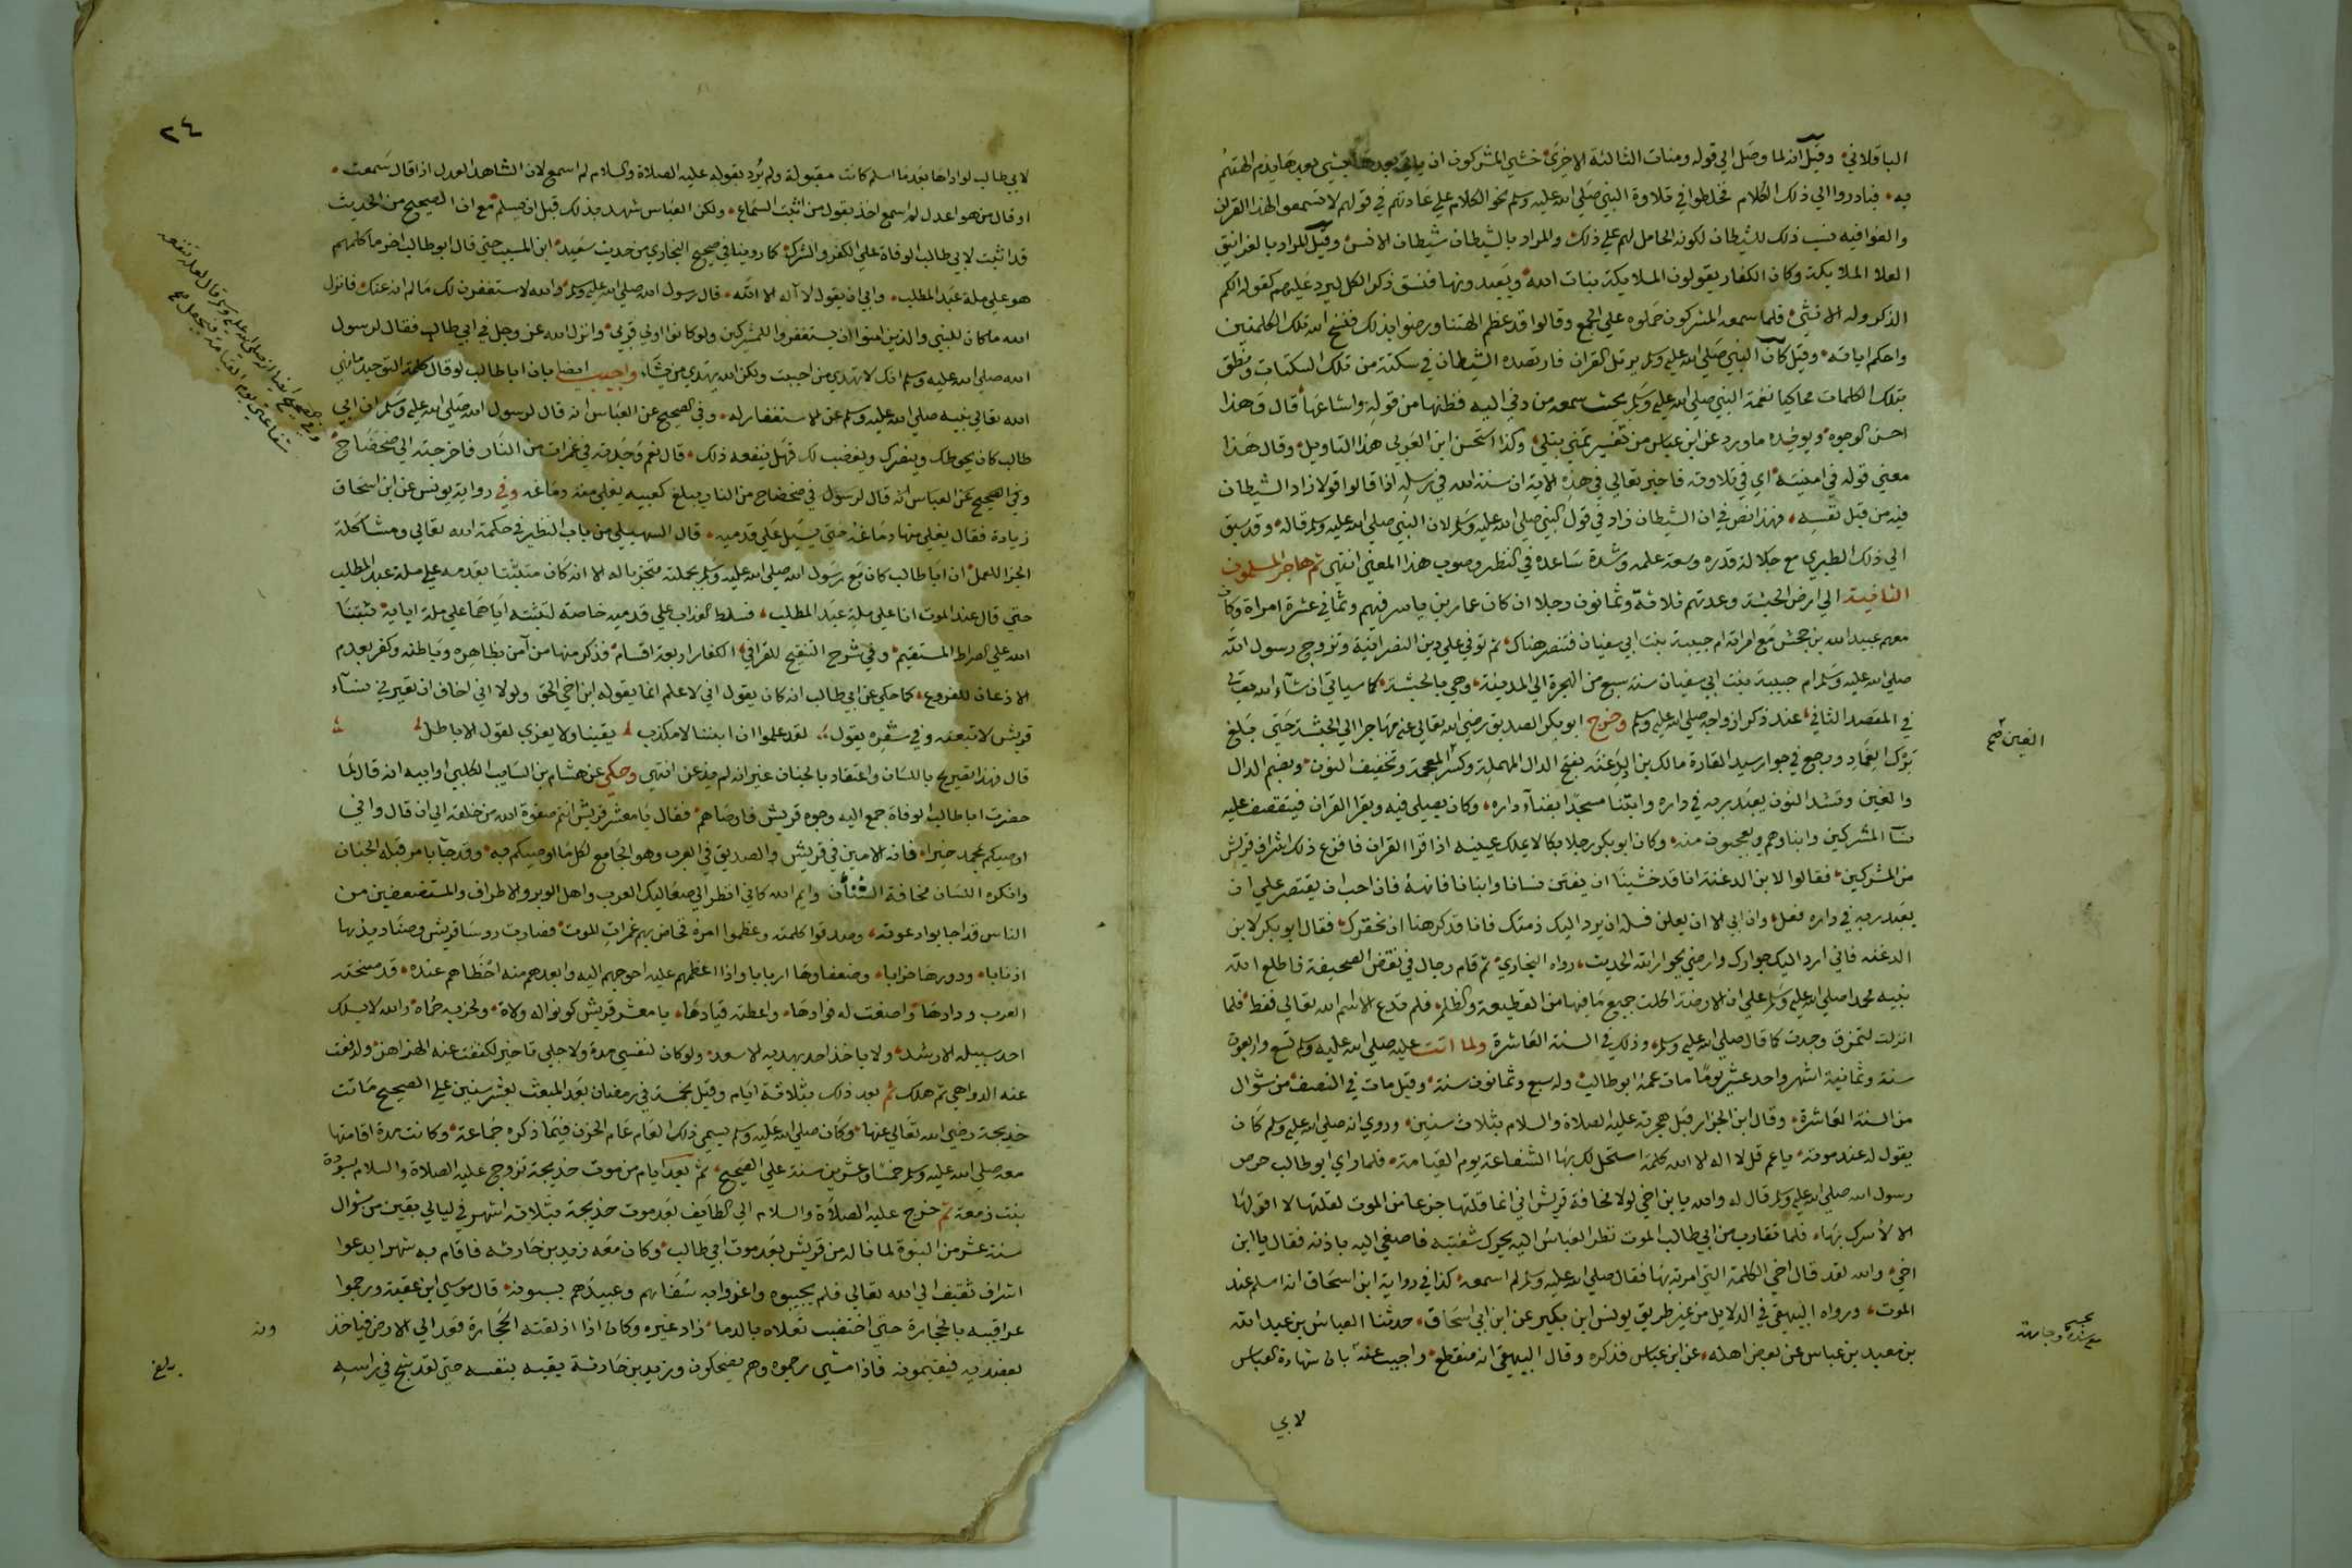 الباقلاني وقيل انه لما وصل الي قوله ومنات الثالثة الاخري خشي المشركون ان ياتي بعدها بشي يذم الهتهم
به فبادروا الي ذلك الكلام فخلطوا في تلاوة النبي صلي الله عليه وسلم نحو الكلام علي عادتهم في قولهم لا تسمعوا لهذا القران
والغوا فيه فنسب ذلك للشيطان لكونه الحامل لهم علي ذلك والمراد بالشيطان شيطان الانس وقيل المراد بالغرانيق
العلا الملايكة وكان الكفار يقولون الملايكة بنات الله ويعبدونها فنسق ذكر الكل ليرد عليهم كقوله الكم
الذكر وله الانثي فلما سمعه المشركون حملوه علي الجمع وقالوا قد عظم الهتنا ورضوا بذلك فنسخ الله تلك الكلمتين
واحكم اياته وقيل كان النبي صلي الله عليه وسلم يرتل القران فارتصده الشيطان في سكتة من تلك السكتات ونطق
بتلك الكلمات محاكيا نغمة النبي صلي الله عليه وسلم بحيث سمعه من دني اليه فظنها من قوله واشاعها قال وهذا
احسن الوجوه ويويده ما ورد عن ابن عباس من تفسير تمني بتلي وكذا استحسن ابن العربي هذا التاويل وقال هذا
معني قوله في امنيته اي في تلاوته فاخبر تعالي في هذه الاية ان سنة الله في رسله اذا قالوا قولا زاد الشيطان
فيه من قبل نفسه فهذا نص في ان الشيطان زاد في قول النبي صلي الله عليه وسلم لا ان النبي صلي الله عليه وسلم قاله وقد سبق
الي ذلك الطبري مع جلالة قدره وسعة علمه وشدة ساعده في النظر وصوب هذا المعني انتهي ثم هاجر المسلمون
الثانية الي ارض الحبشة وعدتهم ثلاثة وثمانون رجلا ان كان عمار بن ياسر فيهم وثماني عشرة امراة وكان
معهم عبيد الله بن جحش مع امراته ام حبيبة بنت ابي سفيان فتنصر هناك ثم توفي علي دين النصرانية وتزوج رسول الله
صلي الله عليه وسلم ام حبيبة بنت ابي سفيان سنة سبع من الهجرة الي المدينة وهي بالحبشة كما سياتي ان شاء الله تعالي
في المقصد الثاني عند ذكر ازواجه صلي الله عليه وسلم وخرج ابو بكر الصديق رضي الله تعالي عنه مهاجرا الي الحبشة حتي بلغ
برك الغماد ورجع في جوار سيد القارة مالك بن الدغنة بفتح الدال المهملة وكسر المعجمة وتخفيف النون وبضم الدال
والغين وتشد النون يعبد ربه في داره وابتنا مسجدا بفناء داره وكان يصلي فيه ويقرا القران فيتقصف عليه
نسا المشركين وابناوهم ويعجبون منه وكان ابو بكر رجلا بكا لا يملك عينيه اذا قرا القران فافزع ذلك اشراف قريش
من المشركين فقالوا لابن الدغنة انا قد خشينا ان يفتن نسانا وابنانا فانهه فان احب ان يقتصر علي ان
يعبد ربه في داره فعل وان ابي الا ان يعلن فسله ان يرد اليك ذمتك فانا قد كرهنا ان نخفرك فقال ابو بكر لابن
الدغنه فاني ارد اليك جوارك وارضي بجوار الله الحديث رواه البخاري ثم قام رجال في نقض الصحيفة فاطلع الله
نبيه محمدا صلي الله عليه وسلم علي ان الارضة اكلت جميع ما فيها من القطيعة والظلم فلم تدع الا اسم الله تعالي فقط فلما
انزلت لتمزق وجدت كما قال صلي الله عليه وسلم وذلك في السنة العاشرة ولما اتت عليه صلي الله عليه وسلم تسع واربعون
سنة وثمانية اشهر واحد عشر يوما مات عمه ابو طالب وله سبع وثمانون سنة وقيل مات في النصف من شوال
من السنة العاشرة وقال ابن الجزار قبل هجرته عليه الصلاة والسلام بثلاث سنين وروي انه صلي الله عليه وسلم كان
يقول له عند موته يا عم قل لا اله الا الله كلمة استحل لك بها الشفاعة يوم القيامة فلما راي ابو طالب حرص
رسول الله صلي الله عليه وسلم قال له والله يا بن اخي لولا مخافة قريش اني انما قلتها جزعا من الموت لقلتها لا اقولها
الا لاسرك بها فلما تقارب من ابي طالب الموت نظر العباس اليه يحرك شفتيه فاصغي اليه باذنه فقال يا ابن
اخي والله لقد قال اخي الكلمة التي امرته بها فقال صلي الله عليه وسلم لم اسمعه كذا في رواية ابن اسحاق انه اسلم عند
الموت ورواه البيهقي في الدلايل من غير طريق يونس ابن بكير عن ابن ابي اسحاق حدثنا العباس بن عبد الله
بن معبد بن عباس عن بعض اهله عن ابن عباس فذكره وقال البيهقي انه منقطع واجيب عنه بان شهادة العباس
لابي
الغين صح
٢٤
لابي طالب لو اداها بعد ما اسلم كانت مقبولة ولم ترد بقوله عليه الصلاة والسلام لم اسمع لان الشاهد العدل اذا قال سمعت
او قال من هو اعدل لم اسمع اخذ بقول من اثبت السماع ولكن العباس شهد بذلك قبل ان يسلم مع ان الصحيح من الحديث
قد اثبت لابي طالب الوفاة علي الكفر والشرك كما روينا في صحيح البخاري من حديث سعيد ابن المسيب حتي قال ابو طالب اخر ما كلمهم
هو علي ملة عبد المطلب وابي ان يقول لا اله الا الله قال رسول الله صلي الله عليه وسلم والله لاستغفرن لك ما لم انه عنك فانزل
الله ما كان للنبي والذين امنوا ان يستغفروا للمشركين ولو كانوا اولي قربي وانزل الله عز وجل في ابي طالب فقال لرسول
الله صلي الله عليه وسلم انك لا تهدي من احببت ولكن الله يهدي من يشاء واجيب ايضا بان ابا طالب لو قال كلمة التوحيد ما نهي
الله تعالي نبيه صلي الله عليه وسلم عن الاستغفار له وفي الصحيح عن العباس انه قال لرسول الله صلي الله عليه وسلم ان ابي
طالب كان يحوطك وينصرك ويغضب لك فهل ينفعه ذلك قال نعم وجدته في غمرات من النار فاخرجته الي ضحضاح
وفي الصحيح عن العباس انه قال لرسول في ضحضاح من النار يبلغ كعبيه يغلي منه دماغه وفي رواية يونس عن ابن اسحاق
زيادة فقال يغلي منها دماغه حتي يسيل علي قدميه قال السهيلي من باب النظر في حكمة الله تعالي ومشاكلة
الجزا للعمل ان ابا طالب كان مع رسول الله صلي الله عليه وسلم بجملته متحزبا له الا انه كان متثبتا بقدمه علي ملة عبد المطلب
حتي قال عند الموت انا علي ملة عبد المطلب فسلط العذاب علي قدميه خاصة لتثبته اياهما علي ملة ابايه ثبتنا
الله علي الصراط المستقيم وفي شرح التنقيح للقرافي الكفار اربعة اقسام فذكر منها من آمن بظاهره وباطنه وكفر بعدم
الاذعان للفروع كما حكي عن ابي طالب انه كان يقول اني لاعلم انما يقوله ابن اخي لحق ولولا اني اخاف ان تعيرني نساء
قريش لاتبعته وفي شعره يقول لقد علموا ان ابننا لا مكذب يقينا ولا يعزي لقول الاباطل
قال فهذا تصريح باللسان واعتقاد بالجنان غير انه لم يذعن انتهي وحكي عن هشام بن السايب الكلبي او ابيه انه قال لما
حضرت ابا طالب الوفاة جمع اليه وجوه قريش فاوصاهم فقال يا معشر قريش انتم صفوة الله من خلقه الي ان قال واني
اوصيكم بمحمد خيرا فانه الامين في قريش والصديق في العرب وهو الجامع لكل ما اوصيكم به وقد جا بامر قبله الجنان
وانكره اللسان مخافة الشنآن وايم الله كاني انظر الي صعاليك العرب واهل الوبر والاطراف والمستضعفين من
الناس قد اجابوا دعوته وصدقوا كلمته وعظموا امره فخاض بهم غمرات الموت فصارت روسا قريش وصناديدها
اذنابا ودورها خرابا وضعفاوها اربابا واذا اعظمهم عليه احوجهم اليه وابعدهم منه احظاهم عنده قد محضته
العرب ودادها واصغت له فوادها واعطته قيادها يا معشر قريش كونوا له ولاة ولحزبه حماة والله لا يسلك
احد سبيله الا رشد ولا ياخذ احد بهديه الا سعد ولو كان لنفسي مدة ولاجلي تاخير لكففت عنه الهزاهز ولدفعت
عنه الدواهي ثم هلك ثم بعد ذلك بثلاثة ايام وقيل بخمسة في رمضان بعد المبعث بعشر سنين علي الصحيح ماتت
خديجة رضي الله تعالي عنها وكان صلي الله عليه وسلم يسمي ذلك العام عام الحزن فيما ذكره جماعة وكانت مدة اقامتها
معه صلي الله عليه وسلم خمسا وعشرين سنة علي الصحيح ثم بعد ايام من موت خديجة تزوج عليه الصلاة والسلام بسودة
بنت زمعة ثم خرج عليه الصلاة والسلام الي الطايف بعد موت خديجة بثلاثة اشهر في ليالي بقين من شوال
سنة عشر من النبوة لما ناله من قريش بعد موت ابي طالب وكان معه زيد بن حارثه فاقام به شهرا يدعوا
اشراف ثقيف الي الله تعالي فلم يجيبوه واغروا به سفهاهم وعبيدهم يسبونه قال موسي ابن عقبة ورجموا
عراقيبه بالحجارة حتي اختضبت نعلاه بالدما زاد غيره وكان اذا اذلقته الحجارة قعد الي الارض فياخذ
بعضديه فيقيمونه فاذا مشي رجموه وهم يضحكون وزيد بن حارثة يقيه بنفسه حتي لقد شج في راسه
وفي الصحيح ايضا انه صلي الله عليه وسلم قال لعله تنفعه
شفاعتي يوم القيامة فيجعل
ونه
بلغ